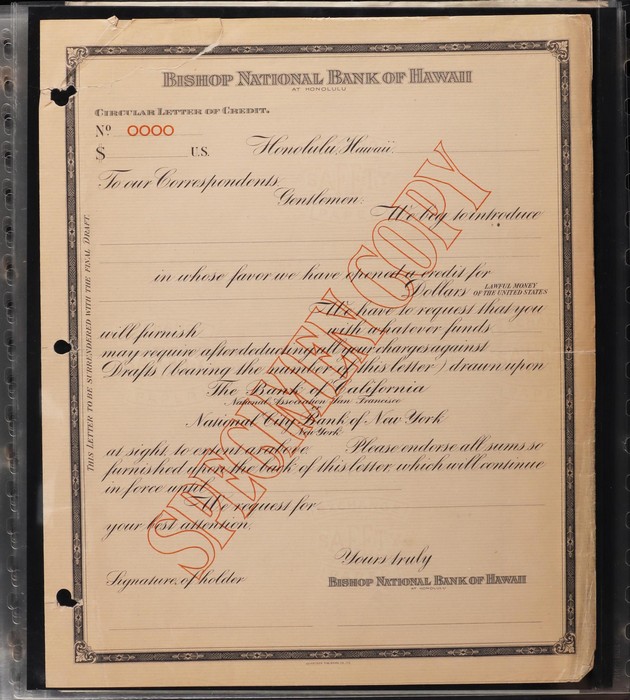 BISHOP NATIONAL BANK OF HAWAII
AT HONOLULU
CIRCULAR LETTER OF CREDIT.
No. 0000
$ U.S. Honolulu, Hawaii,
To our Correspondents
Gentlemen:
We beg to introduce
in whose favor we have opened a credit for
Dollars LAWFUL MONEY OF THE UNITED STATES
We have to request that you
will furnish with whatever funds
may require after deducting all your charges against
Drafts (bearing the number of this letter) drawn upon
The Bank of California
National Association San Francisco
or
National City Bank of New York
New York
at sight, to extent as above. Please endorse all sums so
furnished upon the back of this letter which will continue
in force until
We request for
your best attention.
Yours truly
Signature of holder BISHOP NATIONAL BANK OF HAWAII
AT HONOLULU
THIS LETTER TO BE SURRENDERED WITH THE FINAL DRAFT.
SPECIMEN COPY